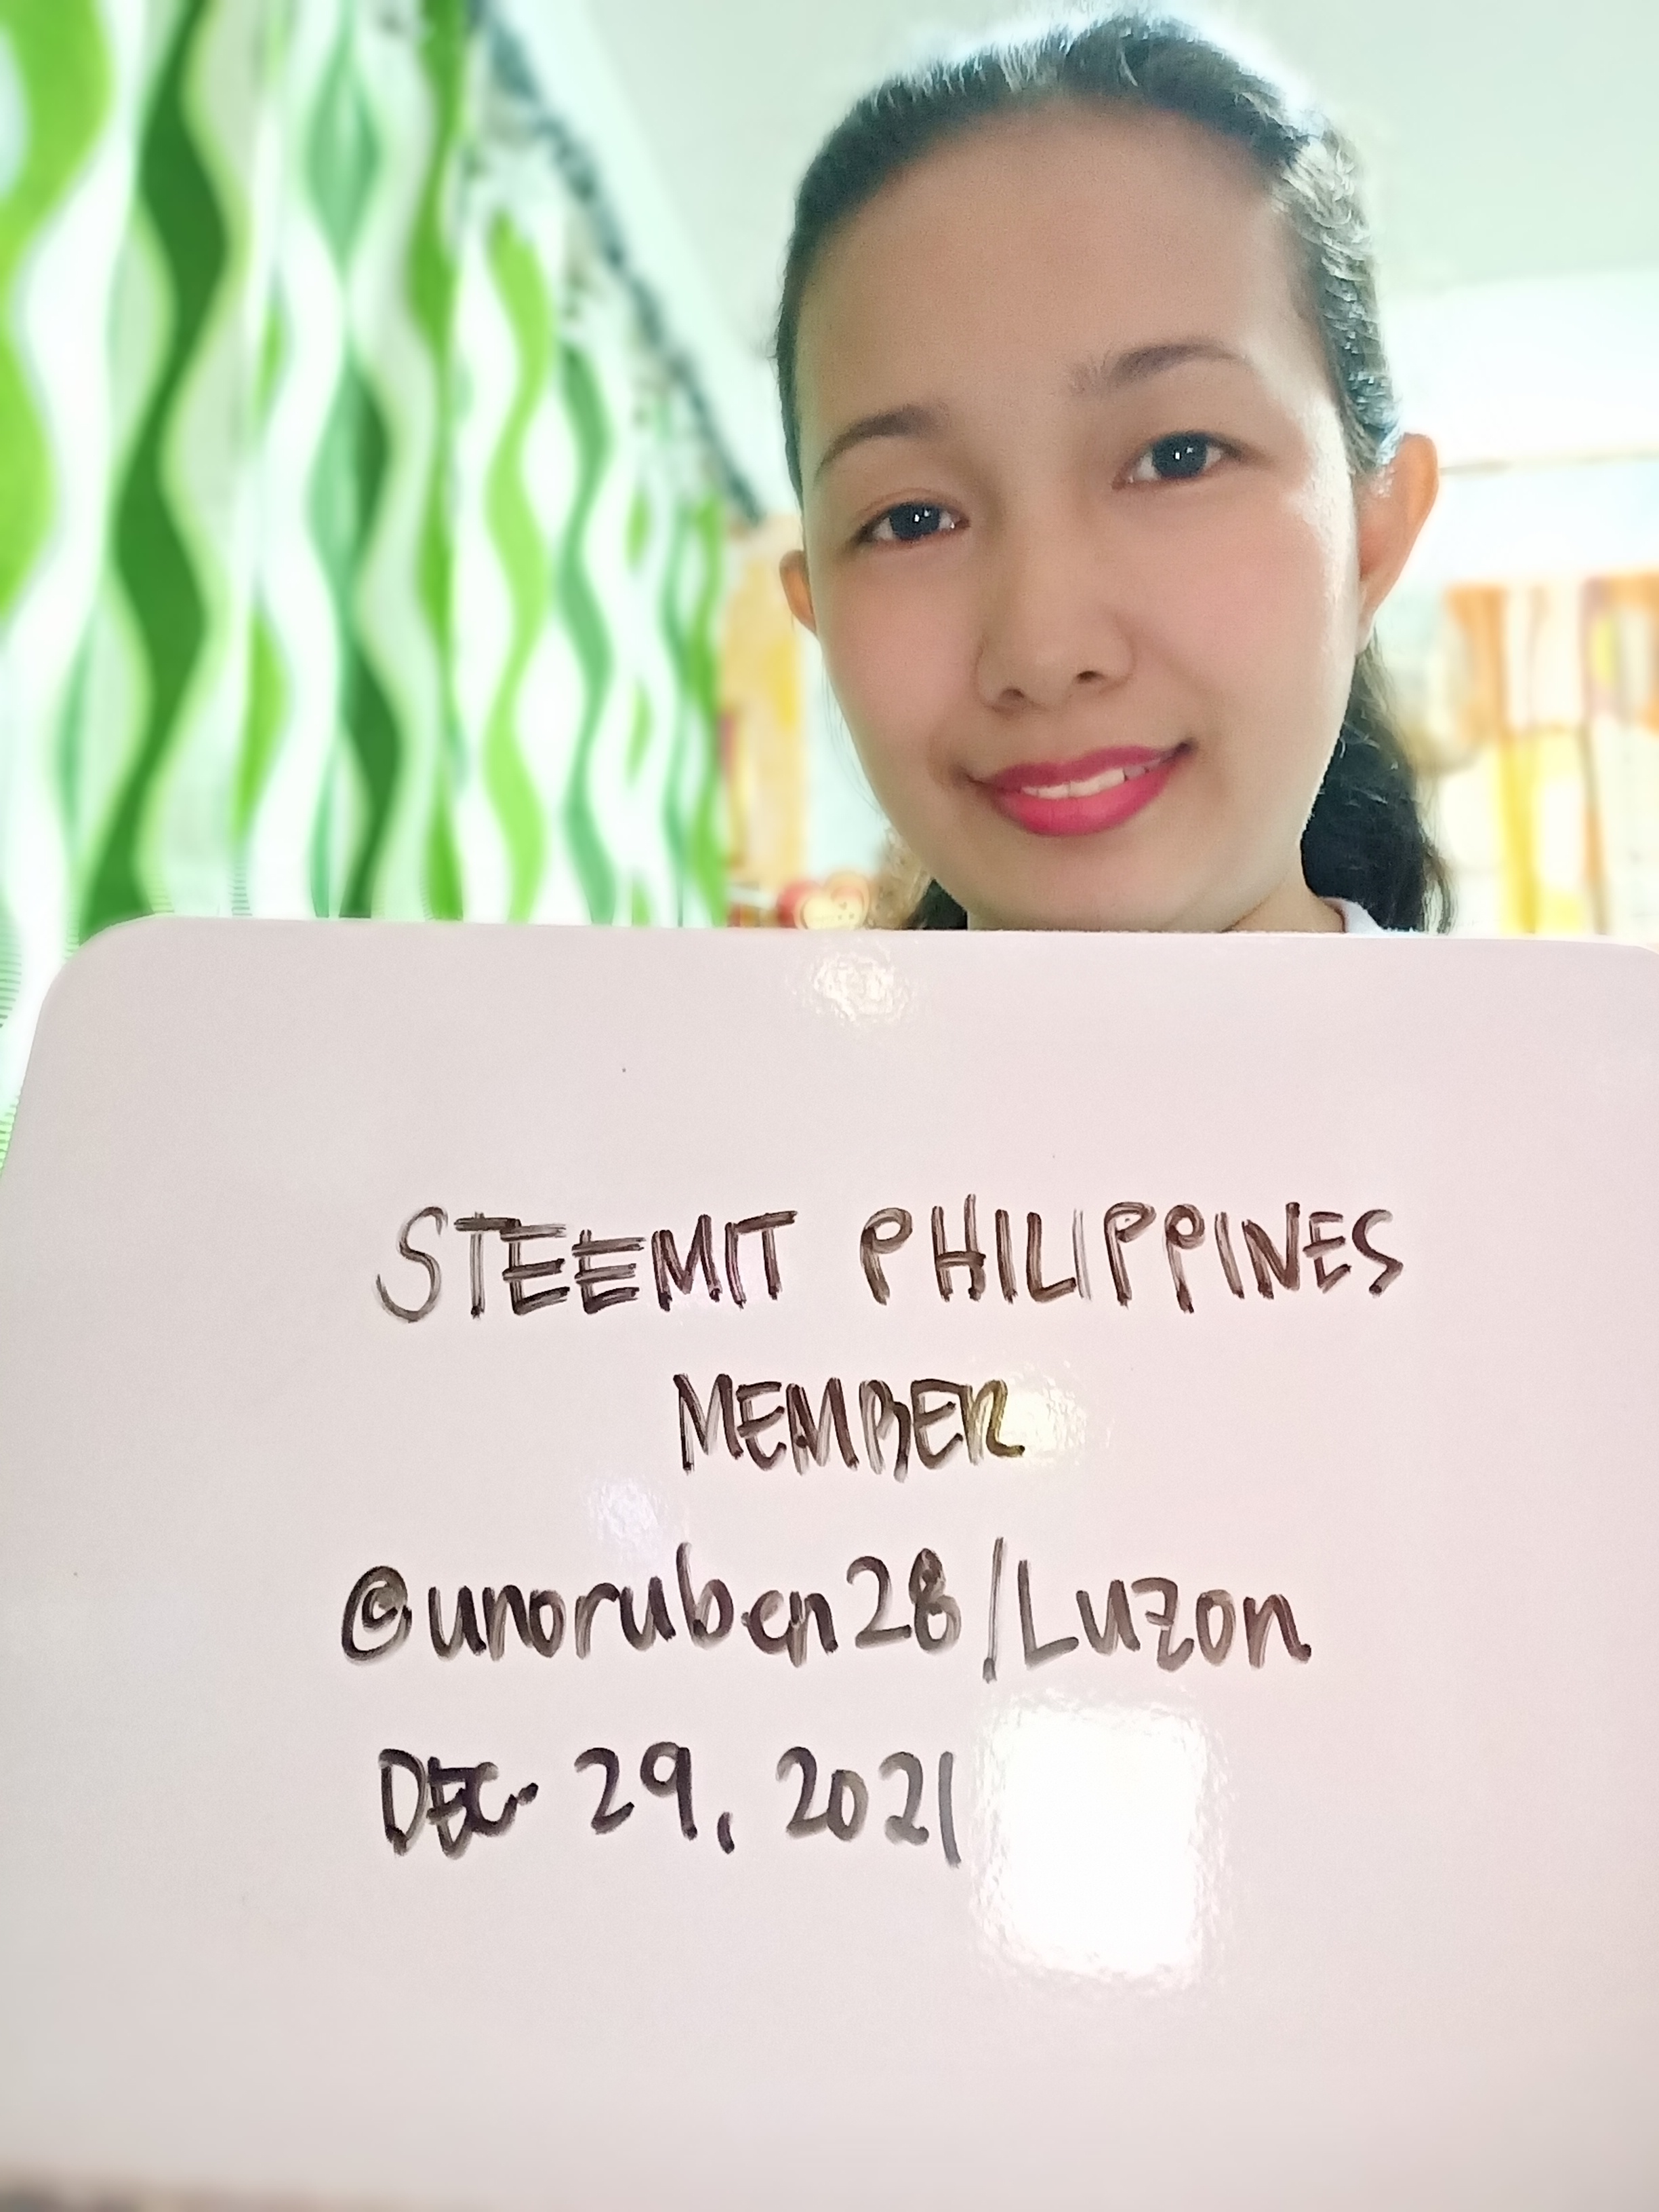 STEEMIT PHILIPPINES
MEMBER
@unoruben28/Luzon
DEC 29, 2021